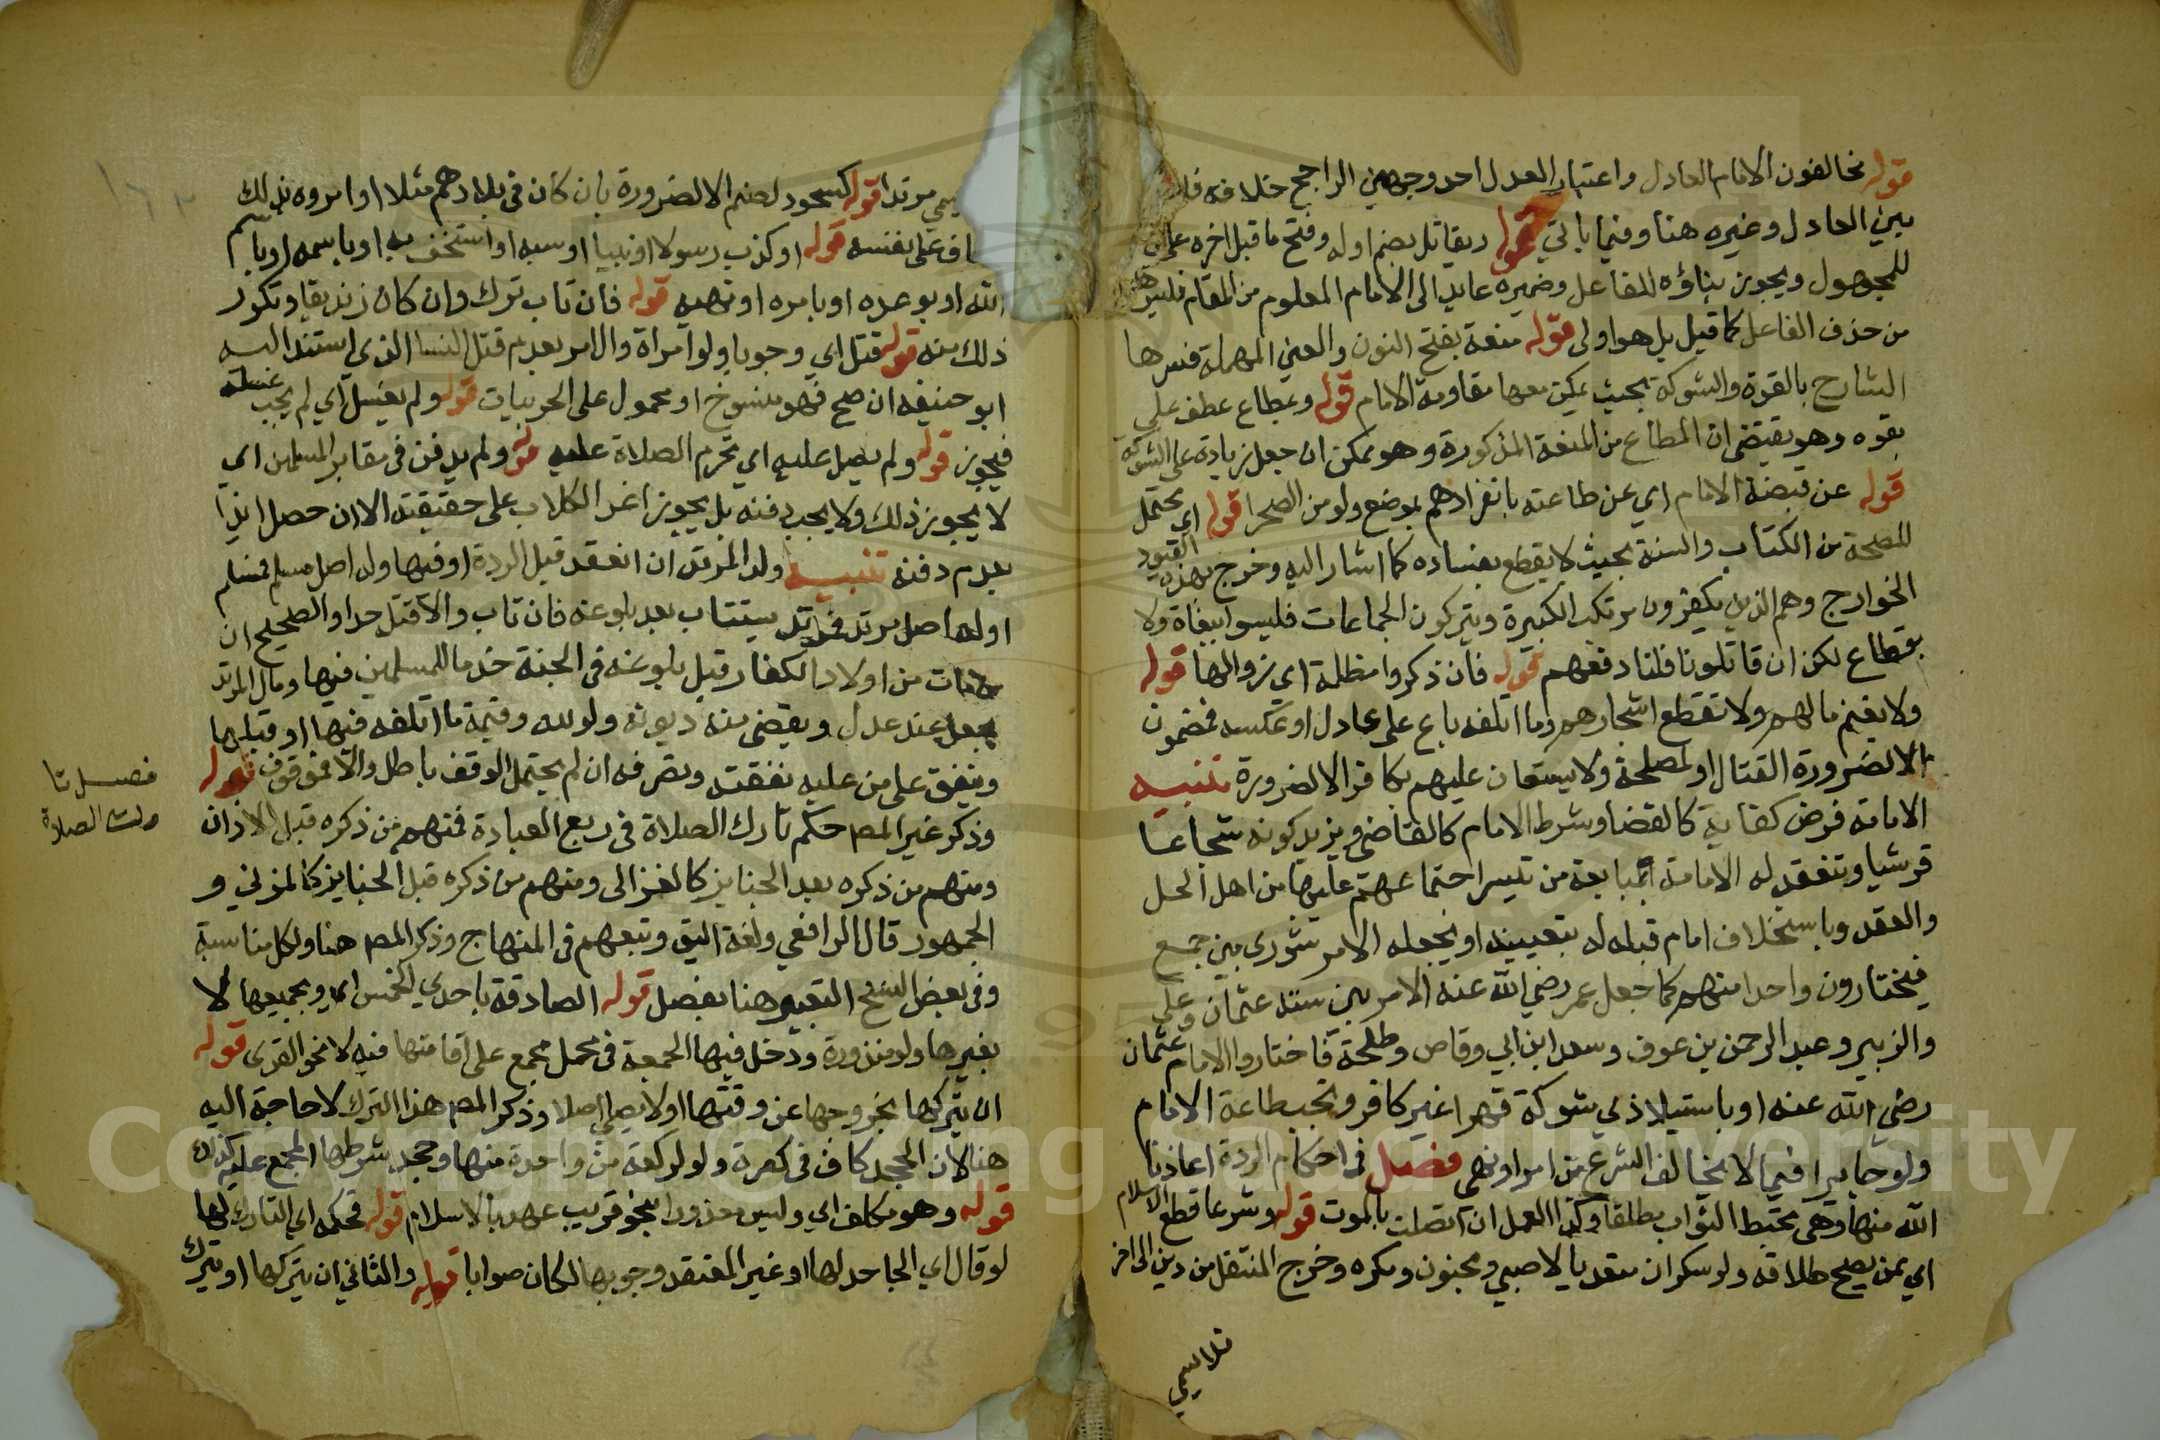 قوله مخالفون الامام العادل واعتبار العدل احد وجهين الراجح خلافه فلا
بين العادل وغيره هنا وفيما ياتي قوله ويقاتل بضم اوله وفتح ما قبل اخره على
للمجهول ويجوز بناؤه للفاعل وضميره عايد الى الامام المعلوم من المقام فليس هذا
من حذف الفاعل كما قيل بل هو اولى قوله منعة بفتح النون والعين المهملة فسرها
الشارح بالقوة والشوكة بحيث يمكن معها مقاومة الامام قوله ومطاع عطف على
بقوه وهو يقتضى ان المطاع من المنعة المذكورة وهو ممكن ان جعل زيادة على الشوكة
قوله عن قبضة الامام اي عن طاعته بانفرادهم بموضع ولو من الصحرا قوله اي محتمل
للصحة من الكتاب والسنة بحيث لا يقطع بفساده كما اشار اليه وخرج بهذه القيود
الخوارج وهم الذين يكفرون مرتكب الكبيرة ويتركون الجماعات فليسوا ببغاة ولا
بقطاع لكن ان قاتلونا فلنا دفعهم قوله فان ذكروا مظلمة اي زوالها قوله
ولا يغنم مالهم ولا تقطع اشجارهم وما اتلفه باغ على عادل او عكسه فمضمون
الا لضرورة القتال او لمصلحة ولا يستعان عليهم بكافر الا لضرورة تنبيه
الامامة فرض كفاية كالقضا وشرط الامام كالقاضي ويزيد كونه شجاعا
قرشيا وتنعقد له الامامة بمبايعة من تيسر اجتماعهم عليها من اهل الحل
والعقد وباستخلاف امام قبله له بتعيينه او بجعله الامر شورى بين جمع
فيختارون واحدا منهم كما جعل عمر رضي الله عنه الامر بين ستة عثمان وعلي
والزبير وعبد الرحمن بن عوف وسعد ابن ابي وقاص وطلحة فاختاروا الامام عثمان
رضي الله عنه او باستيلا ذي شوكة قهرا غير كافر وتجب طاعة الامام
ولو جايرا فيما لا يخالف الشرع من امر او نهى فصل في احكام الردة اعاذنا
الله منها وهي محبط الثواب مطلقا وكذا العمل ان اتصلت بالموت قوله وشرعا قطع الاسلام
اي ممن يصح طلاقه ولو سكران متعديا لا صبي ومجنون ومكره وخرج المنتقل من دين الى اخر
فلا يسمي
يسمي مرتدا قوله كسجود لصنم الا لضرورة بان كان في بلادهم مثلا او امروه بذلك
خاف على نفسه قوله او كذب رسولا او نبيا او سبه او استخف به او باسمه او باسم
الله او بوعده او بامره او نهيه قوله فان تاب ترك وان كان زنديقا وتكرر
ذلك منه قوله قتل اي وجوبا ولو امراة والامر بعدم قتل النسا الذي استند اليه
ابو حنيفه ان صح فهو منسوخ او محمول على الحربيات قوله ولم يغسل اي لم يجب غسله
فيجوز قوله ولم يصل عليه اي تحرم الصلاة عليه قوله ولم يدفن في مقابر المسلمين اي
لا يجوز ذلك ولا يجب دفنه بل يجوز اغرا الكلاب على جيفته الا ان حصل ايذا
بعدم دفنه تنبيه ولد المرتد ان انعقد قبل الردة او فيها وله اصل مسلم فمسلم
او له اصل مرتد فمرتد يستتاب بعد بلوغه فان تاب والا قتل حدا والصحيح ان
من مات من اولاد الكفار قبل بلوغه في الجنة خدما للمسلمين فيها ومال المرتد
يجعل عند عدل ويقضى منه ديونه ولو لله وقيمة ما اتلفه فيها او قبلها
وينفق على من عليه نفقته وتصرفه ان لم يحتمل الوقف باطل والا فموقوف قوله
فصل تا
رك الصلاة
وذكر غير المص حكم تارك الصلاة في ربع العبادة فمنهم من ذكره قبل الاذان
ومنهم من ذكره بعد الجنايز كالغزالى ومنهم من ذكره قبل الجنايز كالمزني و
الجمهور قال الرافعي ولعله اليق وتبعهم في المنهاج وذكر المص هنا ولكل مناسبة
وفي بعض النسخ التعبير هنا بفصل قوله الصادقة باحدي الخمس اي وبجميعها لا
بغيرها ولو منذورة ودخل فيها الجمعة في محمل مجمع على اقامتها فيه لا نحو القرى قوله
ان يتركها بخروجها عن وقتها او لا يصلي اصلا وذكر المص هذا الترك لا حاجة اليه
هنا لان الجحد كاف في كفره ولو لركعة من واحدة منها وجحد شرطها المجمع عليه كذلك
قوله وهو مكلف اي وليس معذورا بنحو قريب عهد بالاسلام قوله فحكمه اي التارك لها
لو قال اي الجاحد لها او غير المعتقد وجوبها لكان صوابا قوله والثاني ان يتركها او يترك